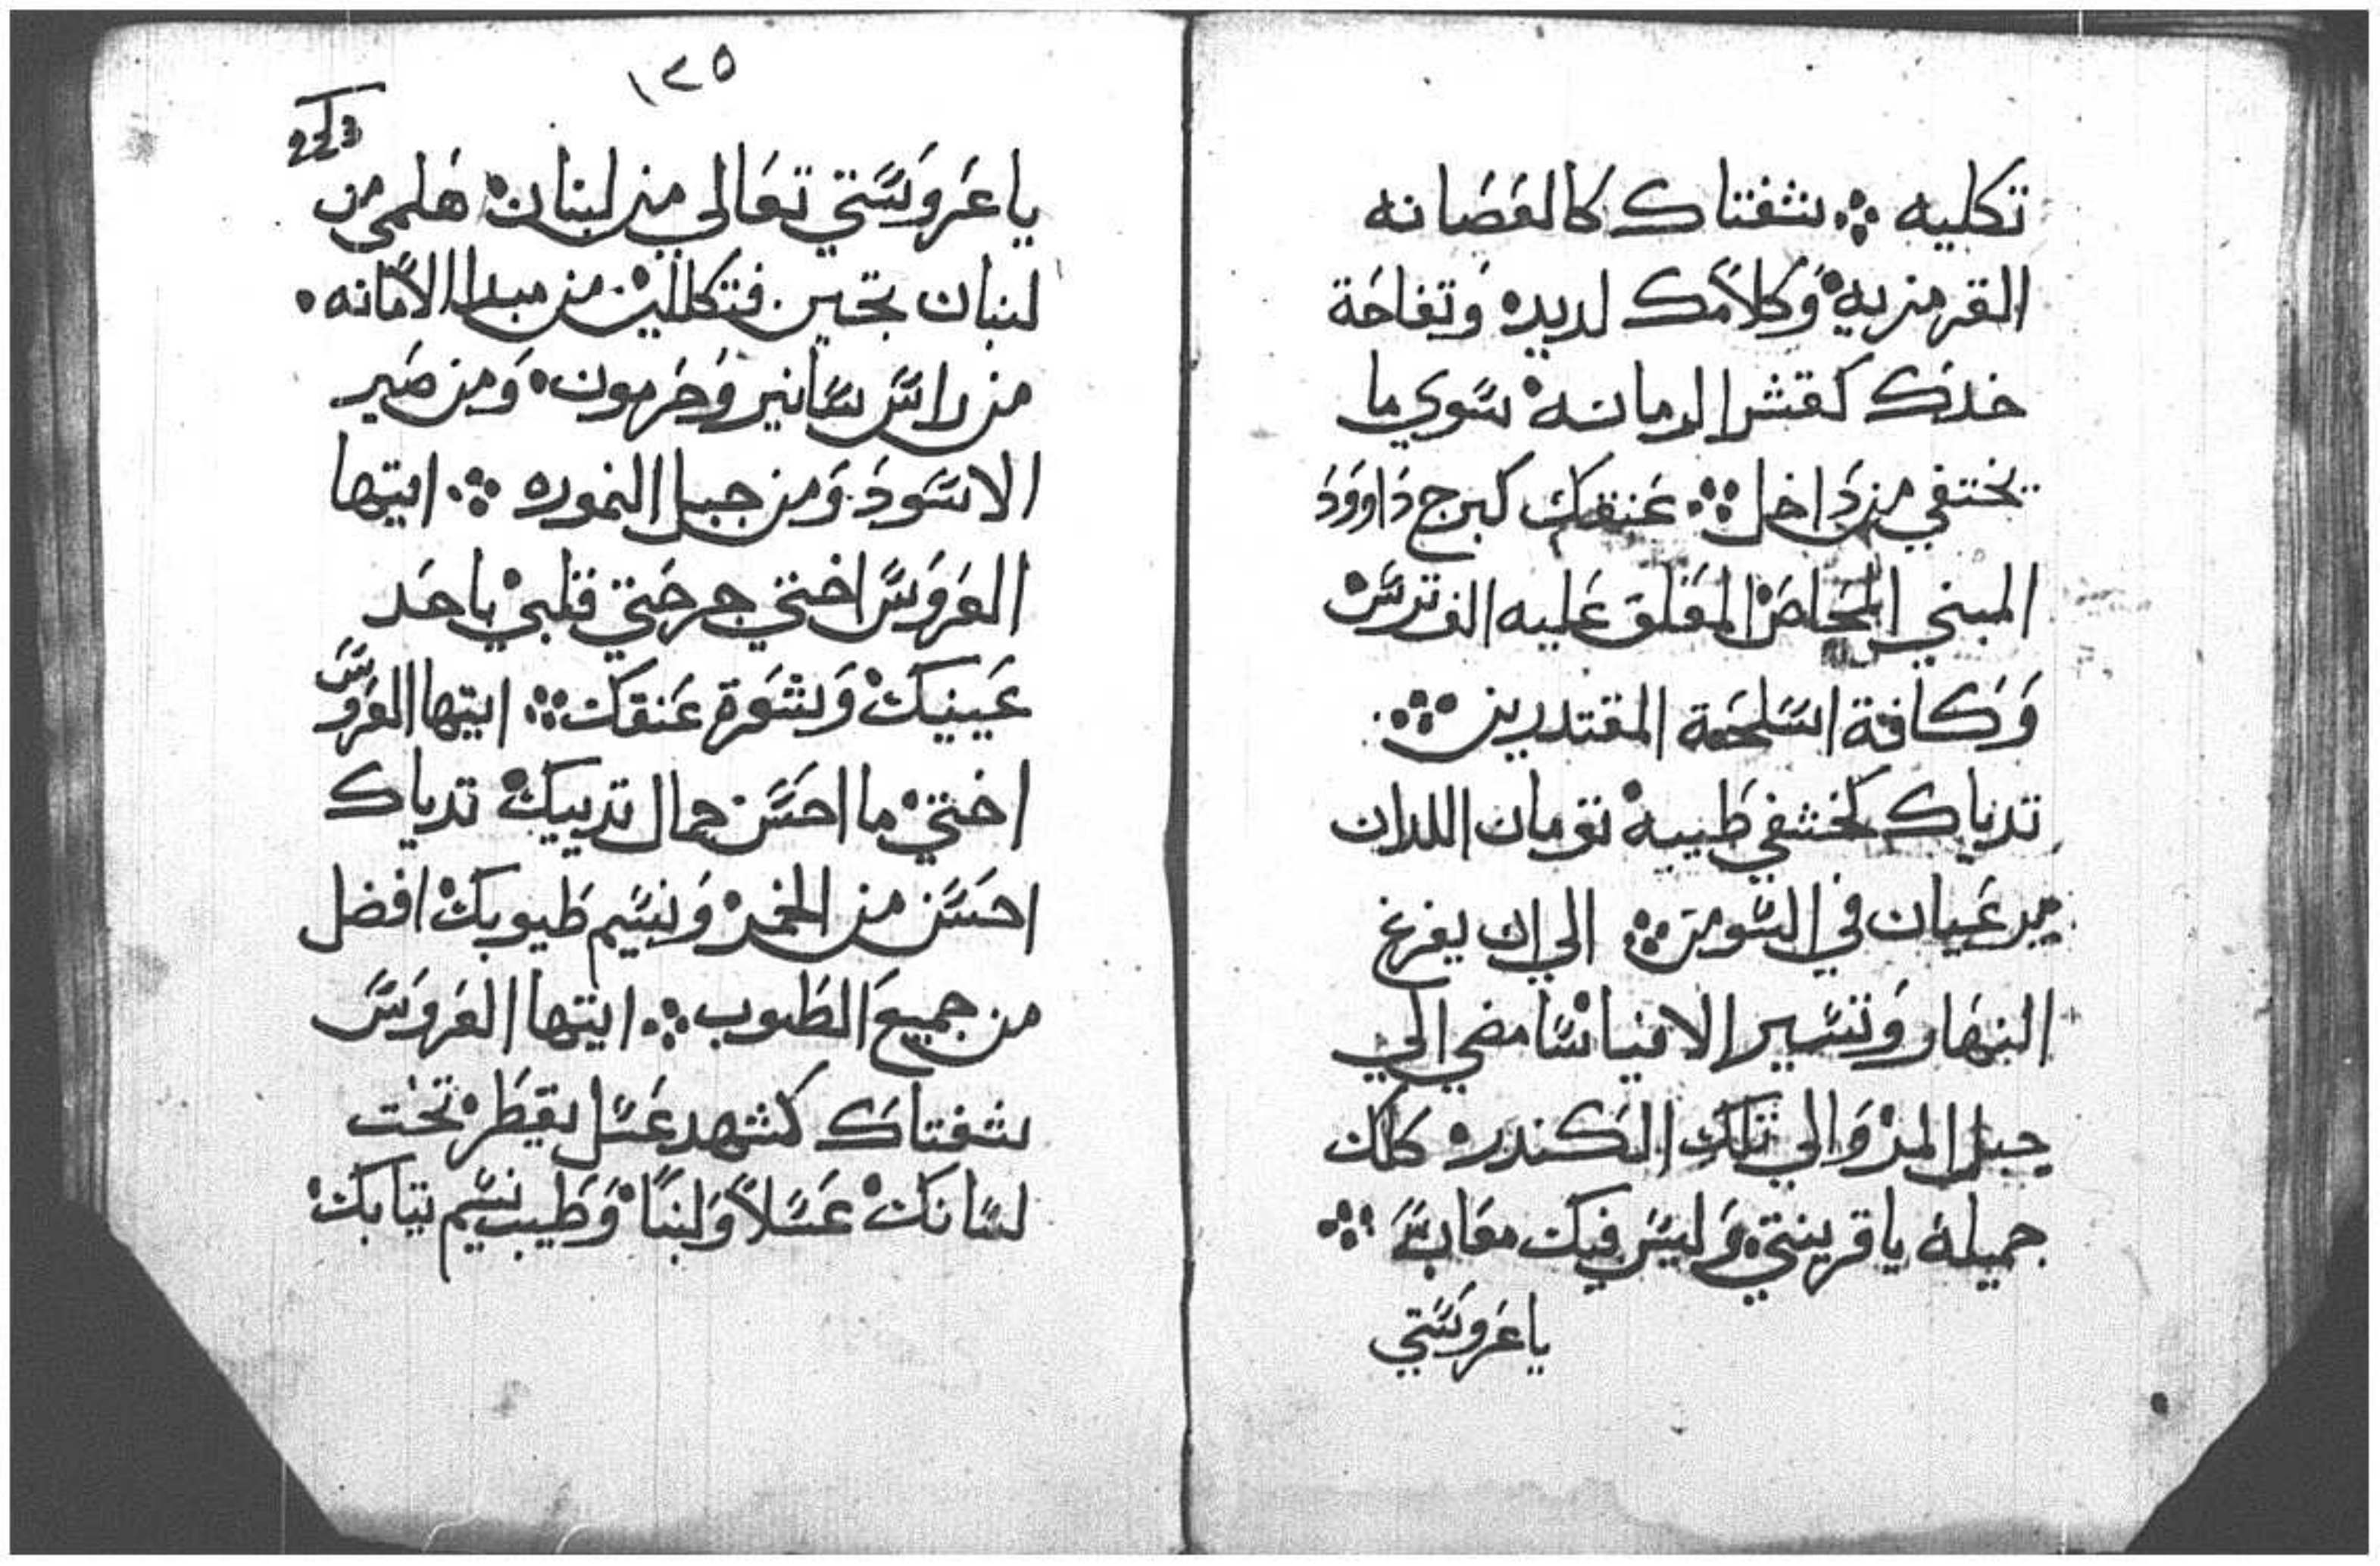 تكليه ܀ شفتاك كالعَصَانه
القرمزيه وَكلاَمك لديده وَتفاحَة
خدَك كقشر الرمانه سَوي ما
يختفي من دَاخل ܀ عَنقك كبرج دَاووَدَ
المبني المحَاصَ المعَلق عَليه الف ترسَ
وَكافة اسَلحَة المقتدرين ܀
تدياك كخشفي ظبيه توَمان اللدان
يرعَيان في السَوسَن ܀ الي ان يفرغ
النهَار وَتسَير الافياء سَامضي الي
جبل المر وَالي تلك الكندره كلك
جميلة ياقرينتي وَليسَ فيك معَابَ ܀
ياعَروَسَتي
١٢٥
ياعَروَسَتي تعَالي من لبنان هَلمي من
لبنان تجين فتكللين من مبدا الاَمَانه
من راسَ سَانير وَحَرمون وَمن صَير
الاسَودَ وَمن جبل النموره ܀ ايتها
العَروَسَ اختي جرحَتي قلبي باحَد
عَينيك وَبشعَرة عَنقك ܀ ايتها العَروَسَ
اختي ما احسَن جمال تدييك تدياك
احسَن من الخمر وَنسَيم طيوبك افضل
من جميعَ الطيوب ܀ ايتها العَروَسَ
شفتاك كشهد عَسَل يقطر تحَت
لسَانك عَسَلاً وَلبناً وَطَيب نسَيم تيابك